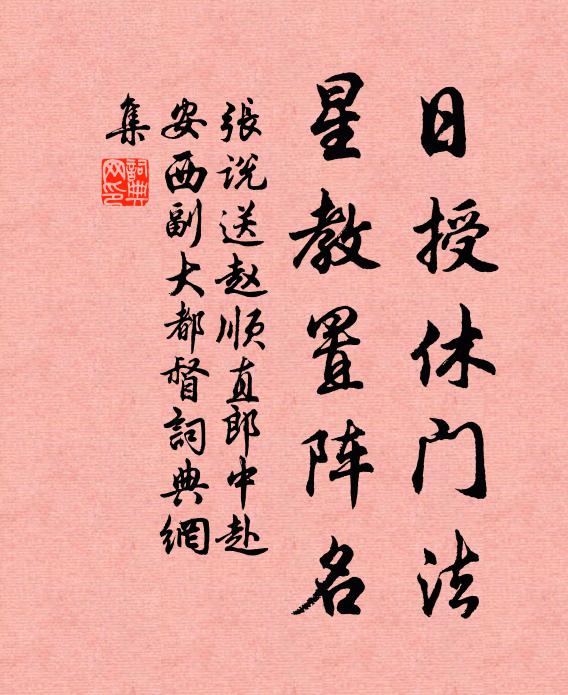 日授休门法
星教置阵名
張说送赵顺直郎中赴
安西副大都督詞典網
集
詞典网印